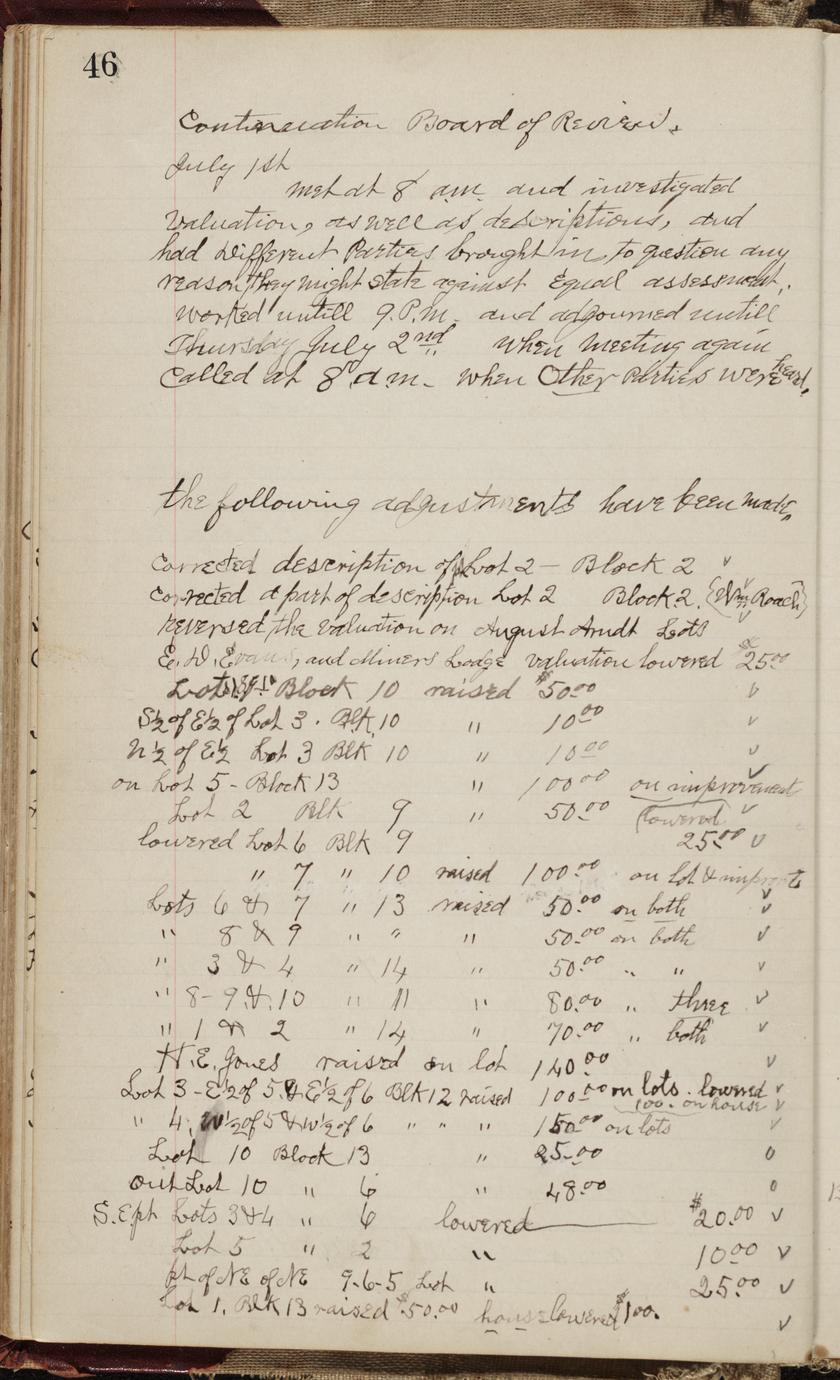 46
Continuation Board of Review.
July 1st
met at 8 a.m. and investigated
Valuation, as well as descriptions, and
had different Parties brought in, to question any
reason they might state against Equal assessment.
Worked untill 9.P.M. and adjourned untill
Thursday July 2nd when Meeting again
Called at 8 a.m. when Other Parties were heard.
the following adjustments have been made,
Corrected description of Lot 2 - Block 2 v
Corrected a part of description Lot 2 Block 2. (Wm Roach) v
Reversed the Valuation on August Arndt Lots
E. W. Evans, and Miners Lodge valuation lowered $25.00
Lots Block 10 raised $50.00 v
S½ of E½ of Lot 3. Blk 10 " 10.00 v
N½ of E½ Lot 3 Blk 10 " 10.00 v
on Lot 5 - Block 13 " 100.00 on improvement v
Lot 2 Blk 9 " 50.00 (lowered v
lowered Lot 6 Blk 9 25.00 v
" 7 " 10 raised 100.00 on lot & improts
Lots 6 & 7 " 13 raised 50.00 on both v
" 8 & 9 " " " 50.00 on both v
" 3 & 4 " 14 " 50.00 " " v
" 8-9 & 10 " 11 " 80.00 " three v
" 1 & 2 " 14 " 70.00 " both v
H. E. Jones raised on lot 140.00 v
Lot 3 - E½ of 5 & E½ of 6 Blk 12 raised 100.00 on lots. lowered v
100. on house v
" 4, W½ of 5 & W½ of 6 " " " 150.00 on lots v
Lot 10 Block 13 " 25.00 o
Out Lot 10 " 6 " 48.00 o
S.E. pt Lots 3 & 4 " 6 lowered $20.00 v
Lot 5 " 2 " 10.00 v
pt of NE of NE 9-6-5 Lot " 25.00 v
Lot 1, Blk 13 raised $50.00 house lowered $100. v